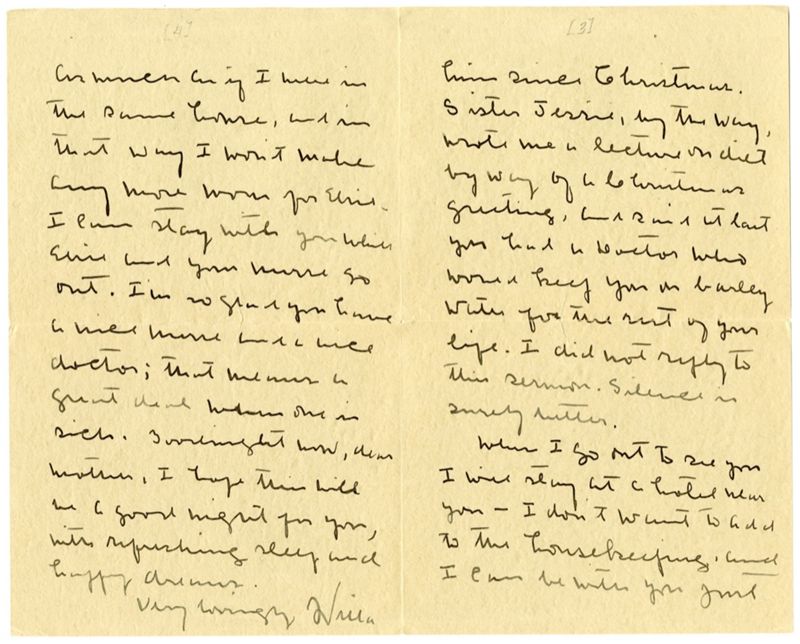 [3]
him since Christmas.
Sister Jessie, by the way,
wrote me a lecture on diet
by way of a Christmas
greeting, and said at last
you had a Doctor who
would keep you on barley
water for the rest of your
life. I did not reply to
this sermon. Silence is
surely better.
When I go out to see you
I will stay at a hotel near
you — I don't want to add
to the housekeeping, and
I can be with you just
[4]
as much as if I were in
the same house, and in
that way I won't make
any more work for Elsie.
I can stay with you while
Elsie and your nurse go
out. I'm so glad you have
a nice nurse and a nice
doctor; that means a
great deal when one is
sick. Goodnight now, dear
mother, I hope this will
be a good night for you,
with refreshing sleep and
happy dreams.
Very lovingly Willa